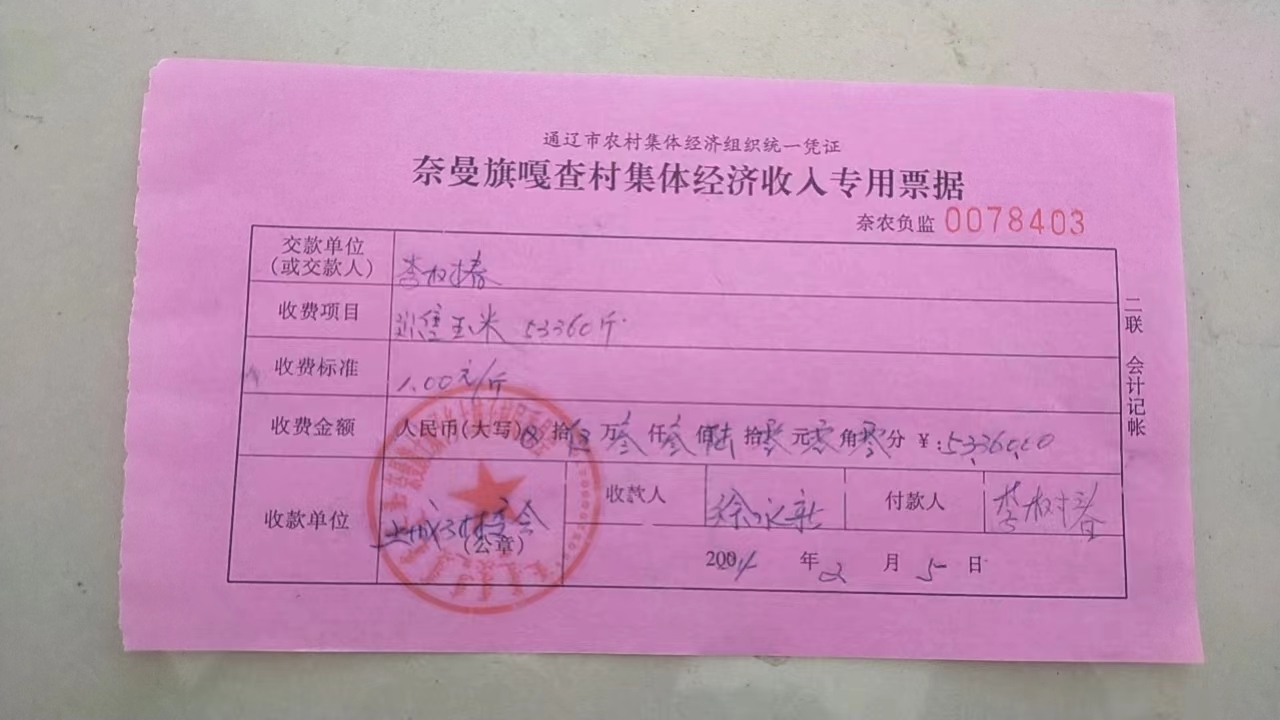 通辽市农村集体经济组织统一凭证
奈曼旗嘎查村集体经济收入专用票据
奈农负监 0078403
交款单位
(或交款人) 李树春
收费项目 出售玉米 53360斤
收费标准 1.00元/斤
收费金额 人民币(大写) 拾伍万叁仟叁佰陆拾零元零角零分 ¥:53360.00
收款单位 (公章)
收款人 徐永新 付款人 李树春
2004年2月5日
二联 会计记帐